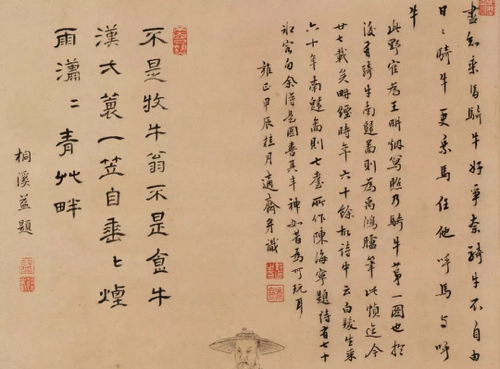 盡知乘馬騎牛好爭奈騎牛不自由
日〻騎牛更乘馬任他呼馬與呼
牛
此野宦為王畊烟寫照乃騎牛第一圖也於
後有騎牛南歸圖則為禹鴻臚筆此幀迄今
廿七載矣畊煙時年六十餘故詩中云白髮生來
六十年南歸圖則七耋所作陳海寧題詩有七十
白余得是圖喜其神如昔為可玩耳
雍正甲辰桂月適齋并識
不是牧牛翁不是食牛
漢蓑一笠自垂〻煙
雨瀟〻青艸畔
桐溪益題